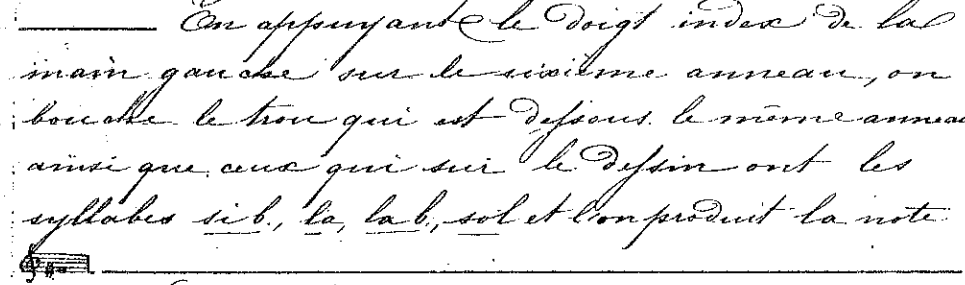 En appuyant le doigt index de la
main gauche sur le sixième anneau, on
bouche le trou qui est dessous le même anneau
ainsi que ceux qui sur le dessin ont les
syllabes si b., la, la b., sol et l'on produit la note